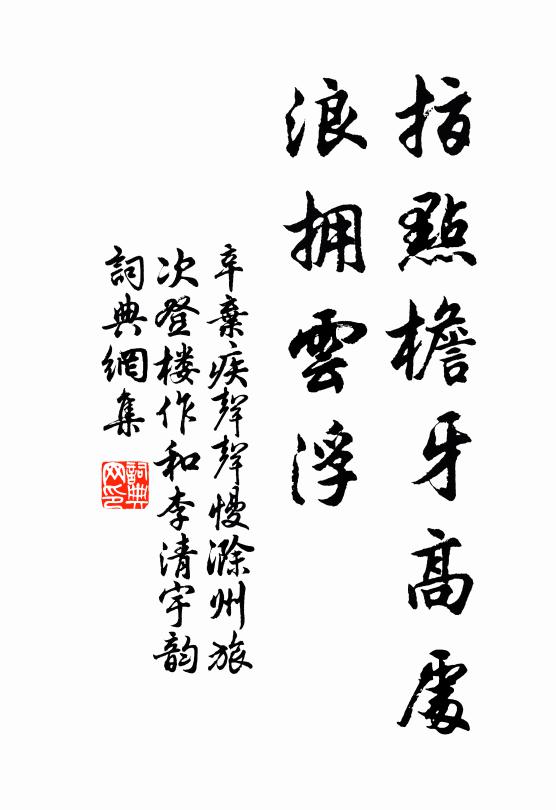 指點檐牙高處
浪拥雲浮
辛棄疾聲聲慢滁州旅
次登楼作和李清宇韵
詞典網集
詞典網印